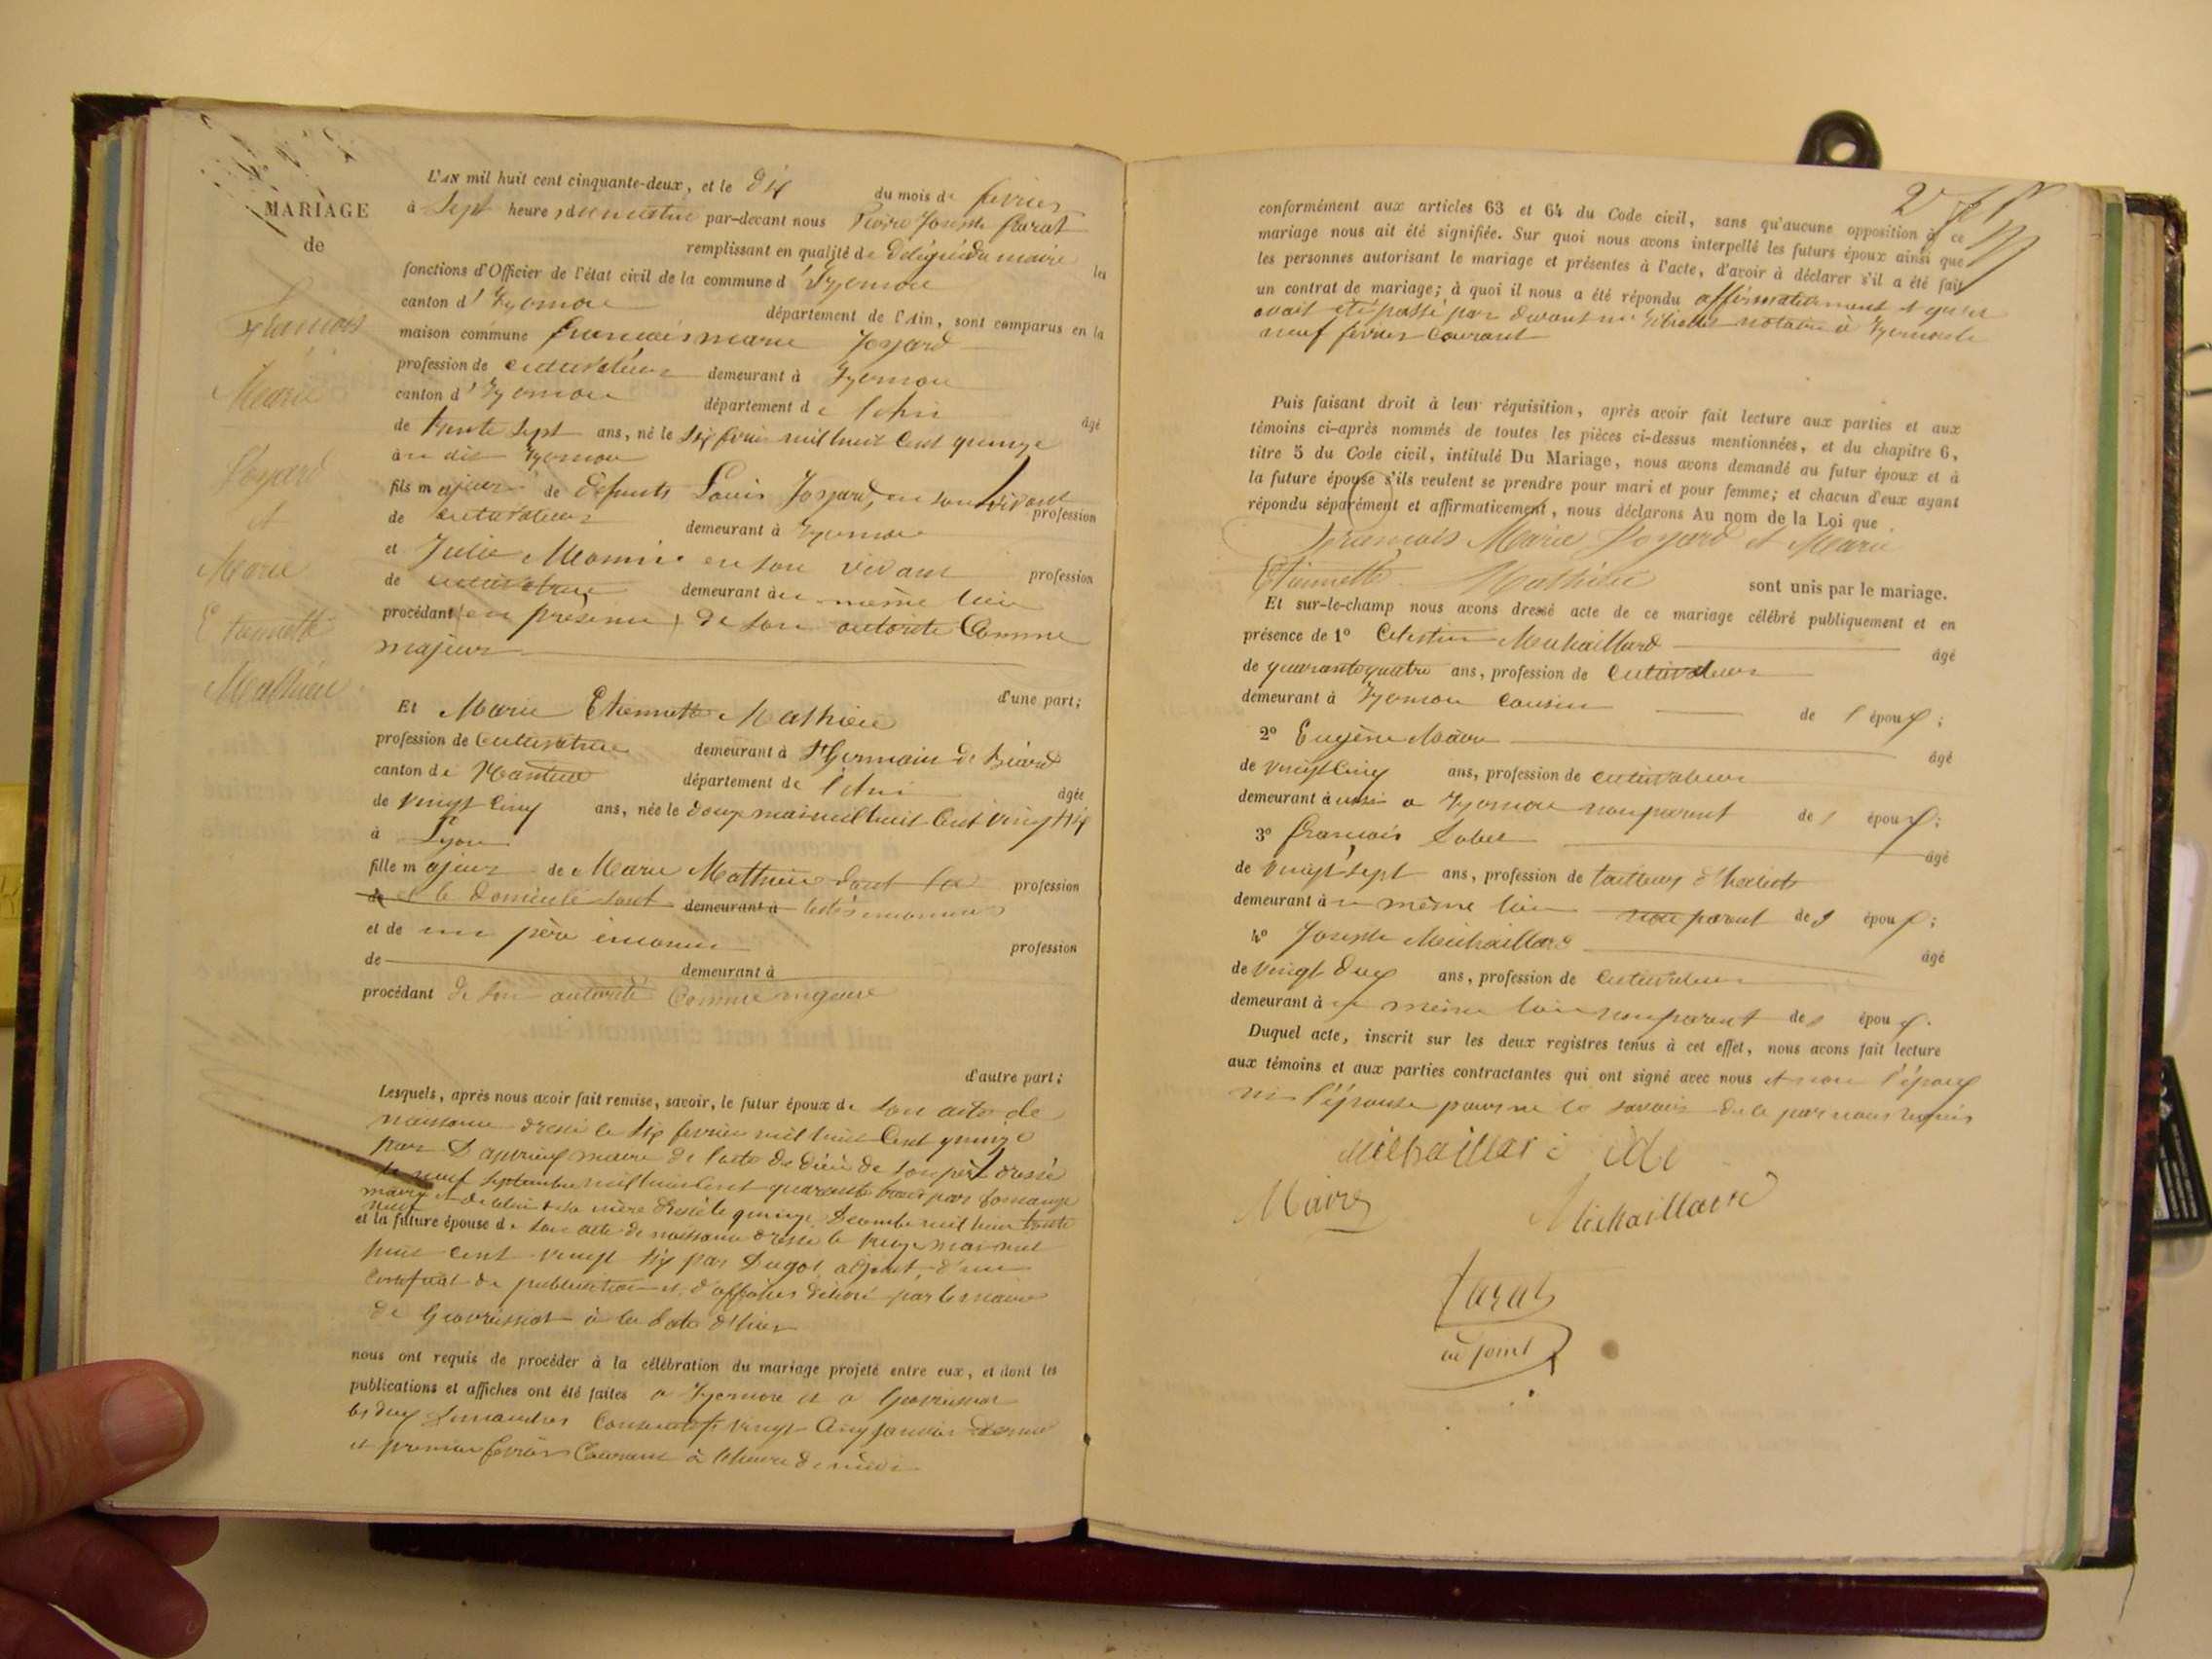 MARIAGE
de
François
Marie
Joyard
et
Marie
Etiennette
Mathieu
L'AN mil huit cent cinquante-deux, et le dix du mois de fevrier
à sept heures du par-devant nous Pierre Joseph
remplissant en qualité de délégué du maire les
fonctions d'Officier de l'état civil de la commune d'Izernore
canton d'Izernore département de l'Ain, sont comparus en la
maison commune françois marie Joyard
profession de cultivateur demeurant à Izernore
canton d'Izernore département de l'Ain âgé
de trente sept ans, né le six fevrier mil huit cent quinze
au dit Izernore
fils majeur de défunts Louis Joyard, en son vivant profession
de cultivateur demeurant à Izernore
et Julie en son vivant profession
de cultivatrice demeurant au même lieu
procédant en présence, de son autorité comme
majeur
d'une part;
Et Marie Etiennette Mathieu
profession de cultivatrice demeurant à St Germain de Béard
canton de département de l'Ain âgée
de vingt cinq ans, née le douze mai mil huit cent vingt six
à Lyon
fille majeure de Marie Mathieu dont la profession
de et le domicile sont demeurant à inconnus
et de un père inconnu profession
de demeurant à
procédant de son autorité comme majeure
d'autre part;
Lesquels, après nous avoir fait remise, savoir, le futur époux de son acte de
naissance dressé le six fevrier mil huit cent quinze
par maire de l'acte de décès de son père dressé
le neuf septembre mil huit cent quarante par
maire et de celui de sa mère dressé le quinze Décembre mil huit trente
neuf
et la future épouse de son acte de naissance dressé le treize mai mil
huit cent vingt six par adjoint, d'un
certificat de publication et d'affiches délivré par le maire
de Geovreissiat à la date d'hier
nous ont requis de procéder à la célébration du mariage projeté entre eux, et dont les
publications et affiches ont été faites à Izernore et à Geovreissiat
les deux dimanches consécutifs vingt cinq janvier dernier
et premier fevrier courant à l'heure de midi
conformément aux articles 63 et 64 du Code civil, sans qu'aucune opposition à ce
mariage nous ait été signifiée. Sur quoi nous avons interpellé les futurs époux ainsi que
les personnes autorisant le mariage et présentes à l'acte, d'avoir à déclarer s'il a été fait
un contrat de mariage; à quoi il nous a été répondu affirmativement et qu'il
avait été passé par devant me notaire à Izernore le
neuf fevrier courant
Puis faisant droit à leur réquisition, après avoir fait lecture aux parties et aux
témoins ci-après nommés de toutes les pièces ci-dessus mentionnées, et du chapitre 6,
titre 5 du Code civil, intitulé Du Mariage, nous avons demandé au futur époux et à
la future épouse s'ils veulent se prendre pour mari et pour femme; et chacun d'eux ayant
répondu séparément et affirmativement, nous déclarons Au nom de la Loi que
François Marie Joyard et Marie
Etiennette Mathieu sont unis par le mariage.
Et sur-le-champ nous avons dressé acte de ce mariage célébré publiquement et en
présence de 1° Celestin Michaillard âgé
de quarante quatre ans, profession de cultivateur
demeurant à Izernore cousin de l'époux;
2° Eugène Maire âgé
de vingt cinq ans, profession de cultivateur
demeurant aussi à Izernore non parent des époux;
3° françois âgé
de vingt sept ans, profession de tailleur d'habits
demeurant au même lieu non parent des époux;
4° Joseph Michaillard âgé
de vingt deux ans, profession de cultivateur
demeurant au même lieu non parent des époux.
Duquel acte, inscrit sur les deux registres tenus à cet effet, nous avons fait lecture
aux témoins et aux parties contractantes qui ont signé avec nous et non l'époux
ni l'épouse pour ne le savoir de ce par nous requis
Michaillard
Maire Michaillard
adjoint